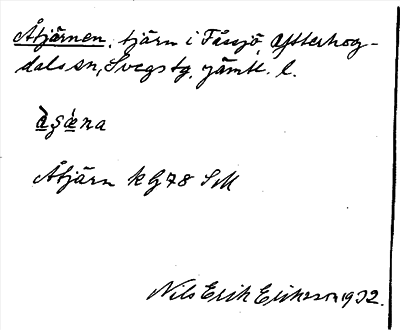 Åtjärnen, tjärn i Fåssjö, Ytterhog-
dals sn, Svegs tg, Jämtl. l.
Åtjärn k G 78 SM
Nils Erik Eriksson 1932.